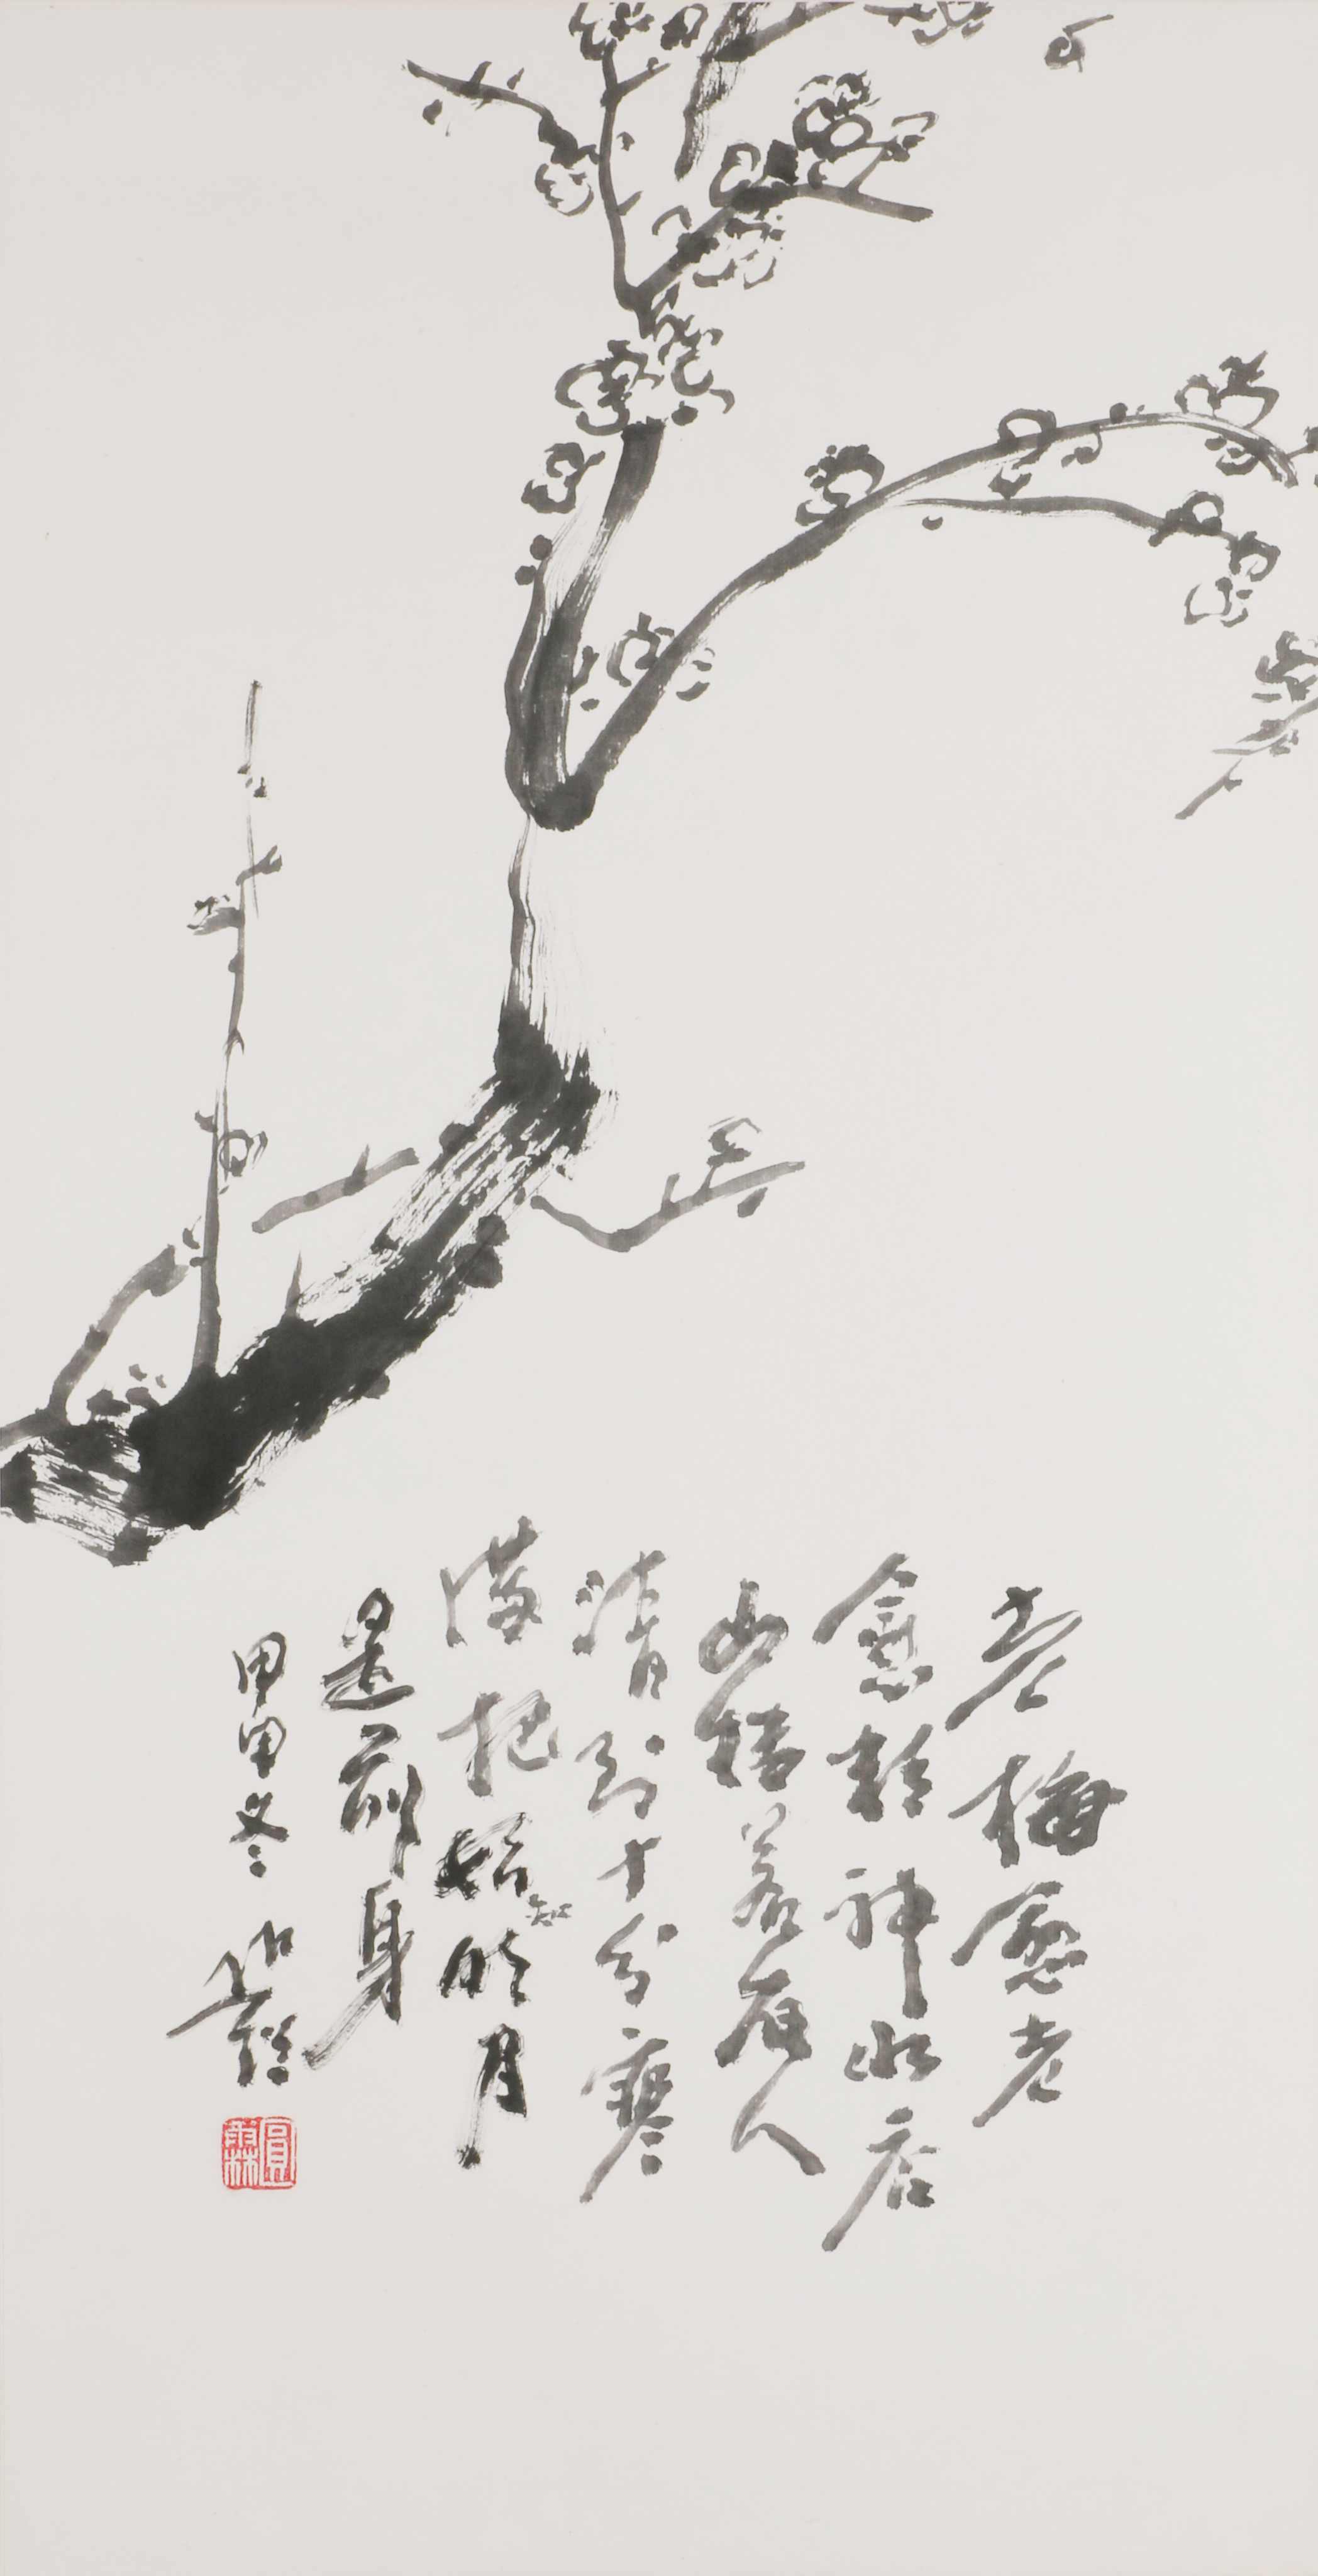 老梅愈老
愈精神水店
山樓若有人
清到十分寒
滿把始知明月
是前身
甲申冬
圓霖